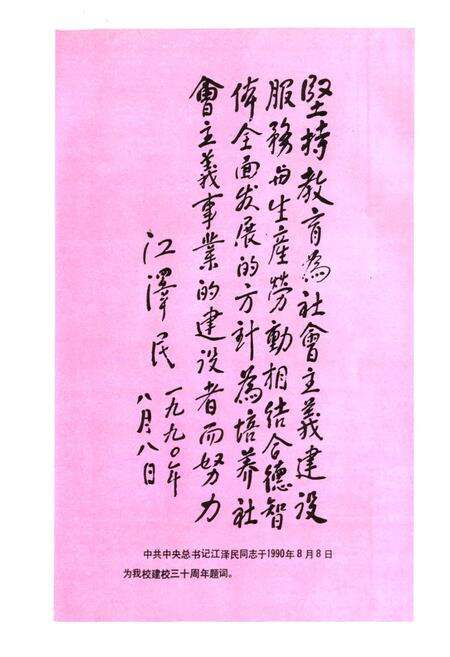 堅持教育為社會主義建設
服務与生產勞動相结合德智
体全面发展的方针為培养社
會主義事業的建设者而努力
江澤民
一九九〇年
八月八日
中共中央总书记江泽民同志于1990年8月8日
为我校建校三十周年题词。